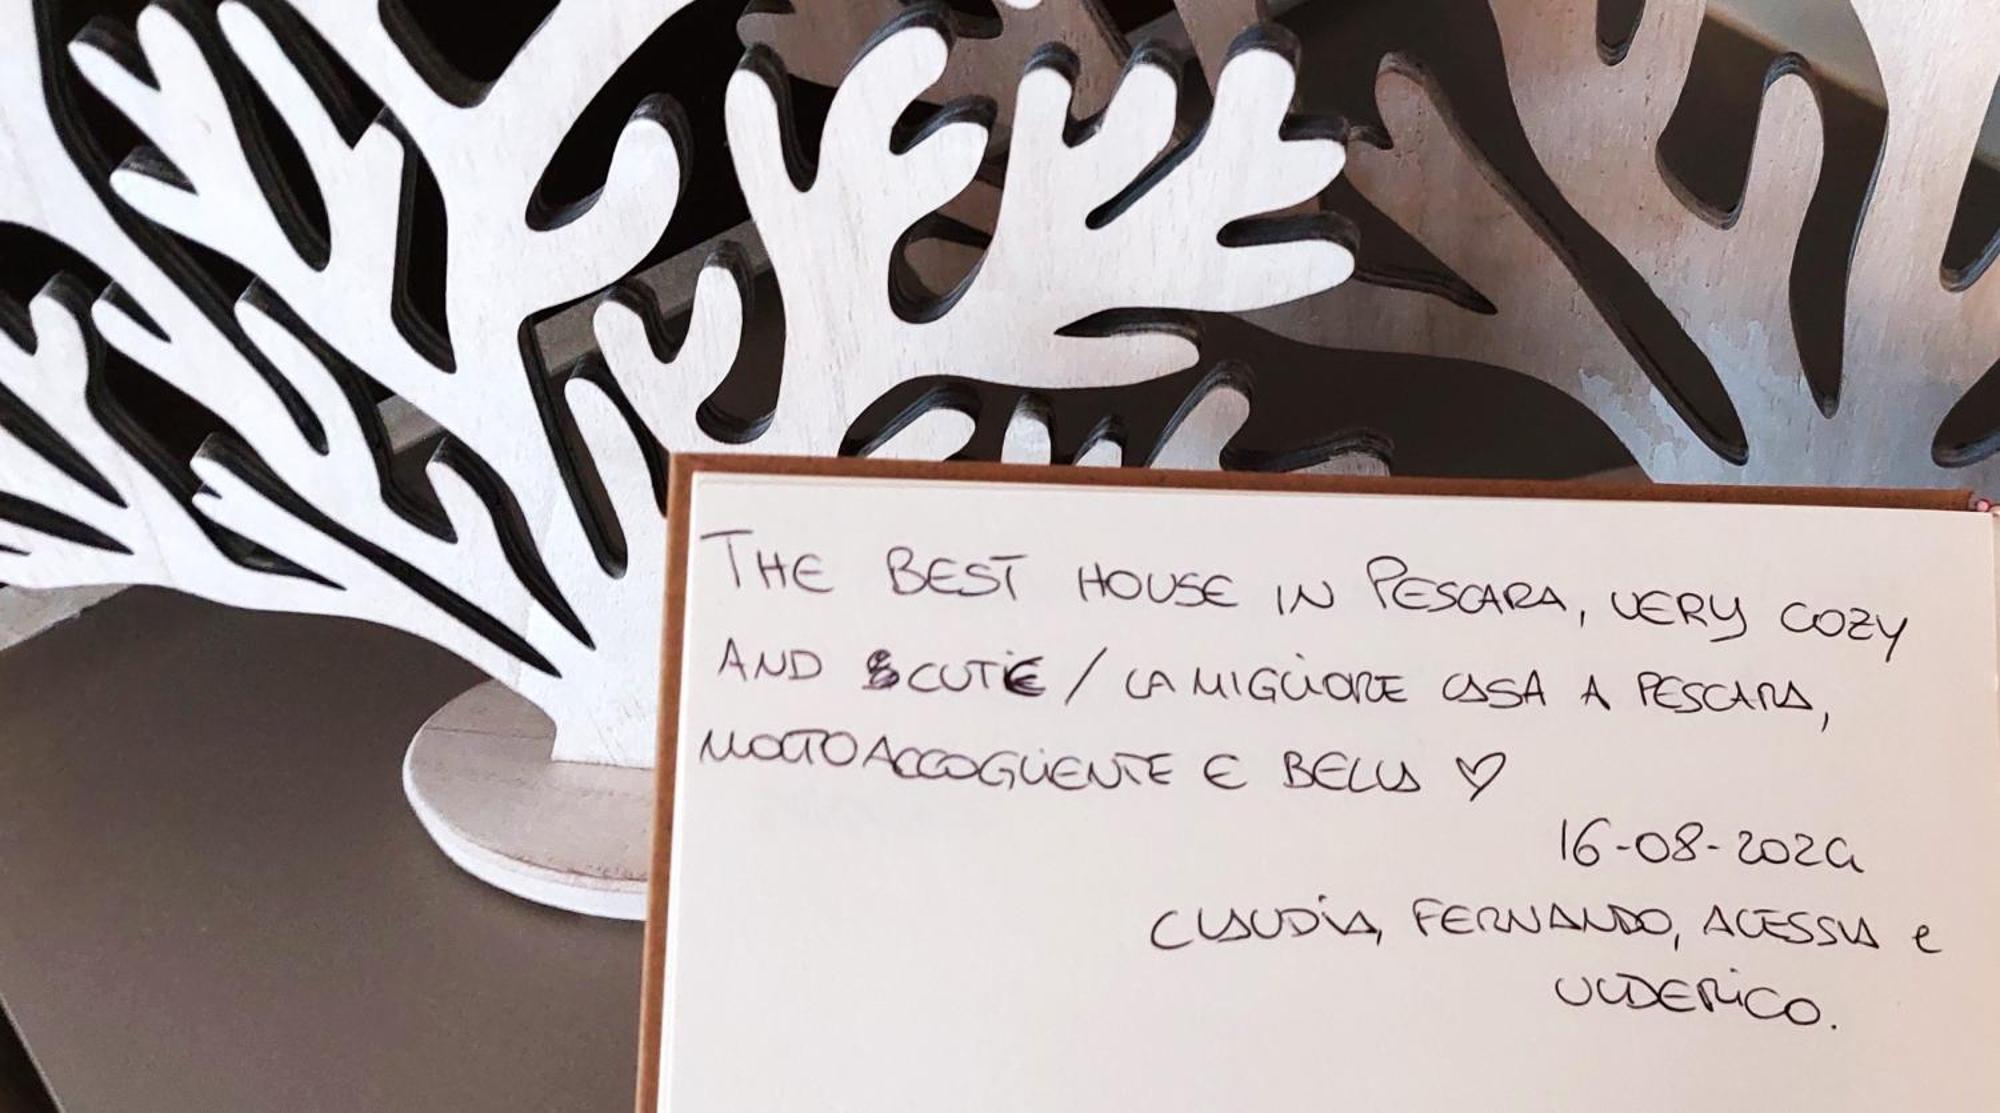 THE BEST HOUSE IN PESCARA, VERY COZY
AND CUTE / LA MIGLIORE CASA A PESCARA,
MOLTO ACCOGLIENTE E BELLA ♡
16-08-2024
CLAUDIA, FERNANDO, ALESSIA e
ULDERICO.